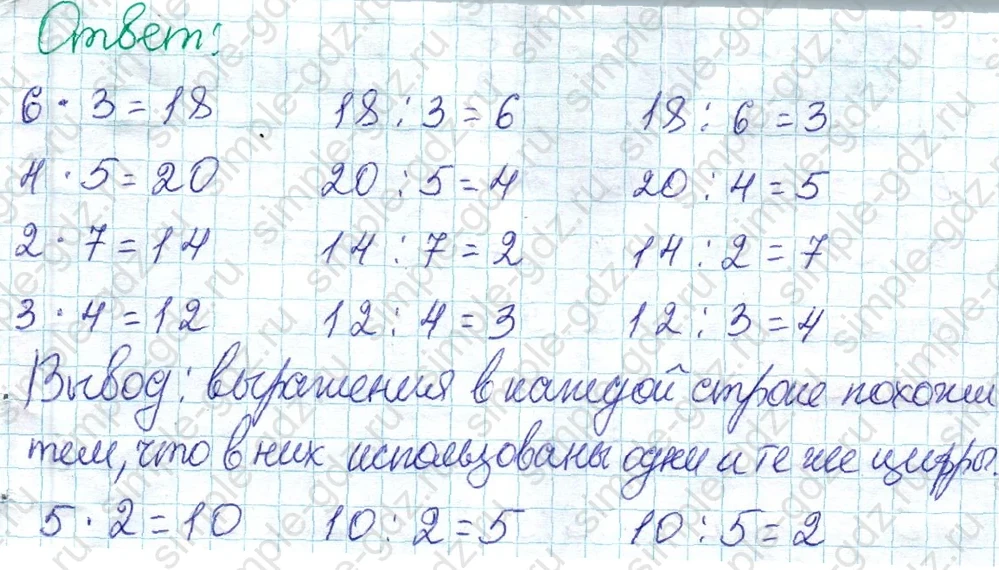 Ответ:
6 · 3 = 18 18 : 3 = 6 18 : 6 = 3
4 · 5 = 20 20 : 5 = 4 20 : 4 = 5
2 · 7 = 14 14 : 7 = 2 14 : 2 = 7
3 · 4 = 12 12 : 4 = 3 12 : 3 = 4
Вывод: выражения в каждой строке похожи
тем, что в них использованы одни и те же цифры.
5 · 2 = 10 10 : 2 = 5 10 : 5 = 2
simple-gdz.ru